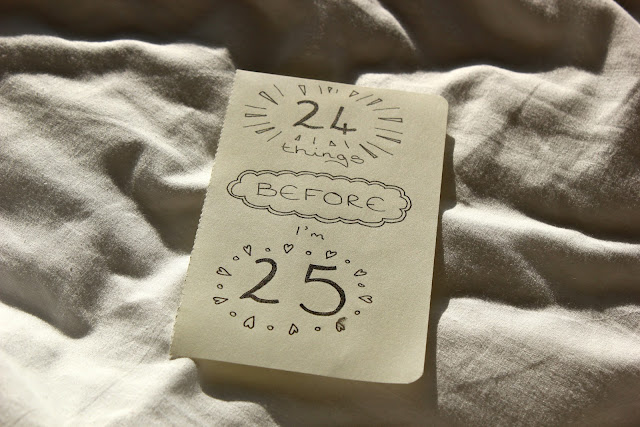 24
things
BEFORE
I'm
25